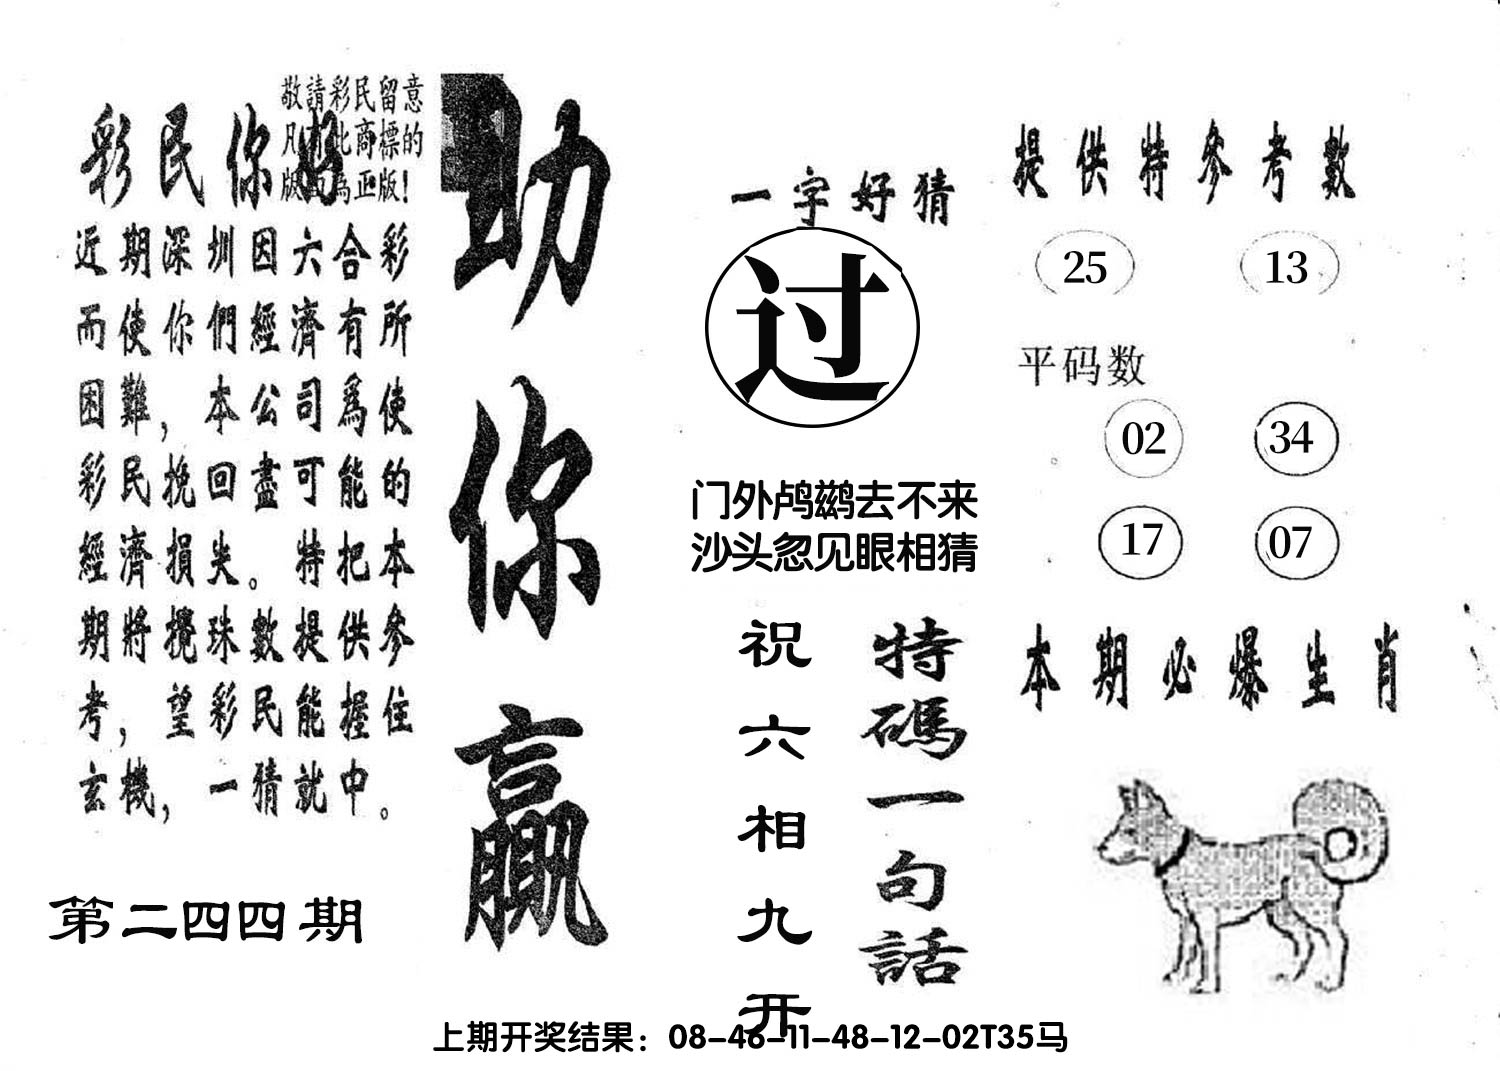 敬請彩民留意
凡有此商標的
版面為正版!
彩民你好
近期深圳因六合彩
而使你們經濟有所
困難，本公司爲使
彩民挽回盡可能的
經濟損失。特把本
期將攪珠數提供參
考，望彩民能握住
玄機，一猜就中。
第二四四期
助你贏
一字好猜
过
门外鸬鹚去不来
沙头忽见眼相猜
特碼一句話
祝六相九开
提供特參考數
25 13
平码数
02 34
17 07
本期必爆生肖
上期开奖结果：08-46-11-48-12-02T35马